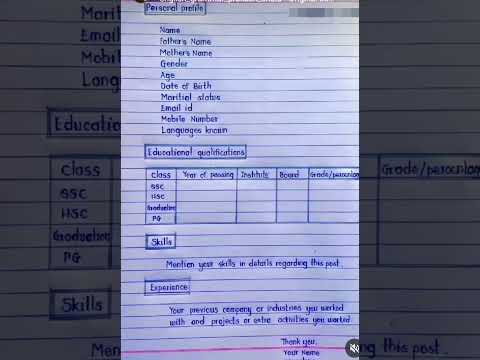 Personal profile
Name
Father's Name
Mother's Name
Gender
Age
Date of Birth
Maritial status
Email id
Mobile Number
Languages known
Educational qualifications
Class Year of passing Institute Board Grade/percentage
SSC
HSC
Graduation
PG
Skills
Mention your skills in details regarding this post.
Experience
Your previous company or industries you worked
with and projects or extra activities you worked
Thank you.
Your Name
Marital
Email
Mobil
Langua
Educati
Class
SSC
HSC
Graduation
PG
Skills
Grade/percentage
this post.